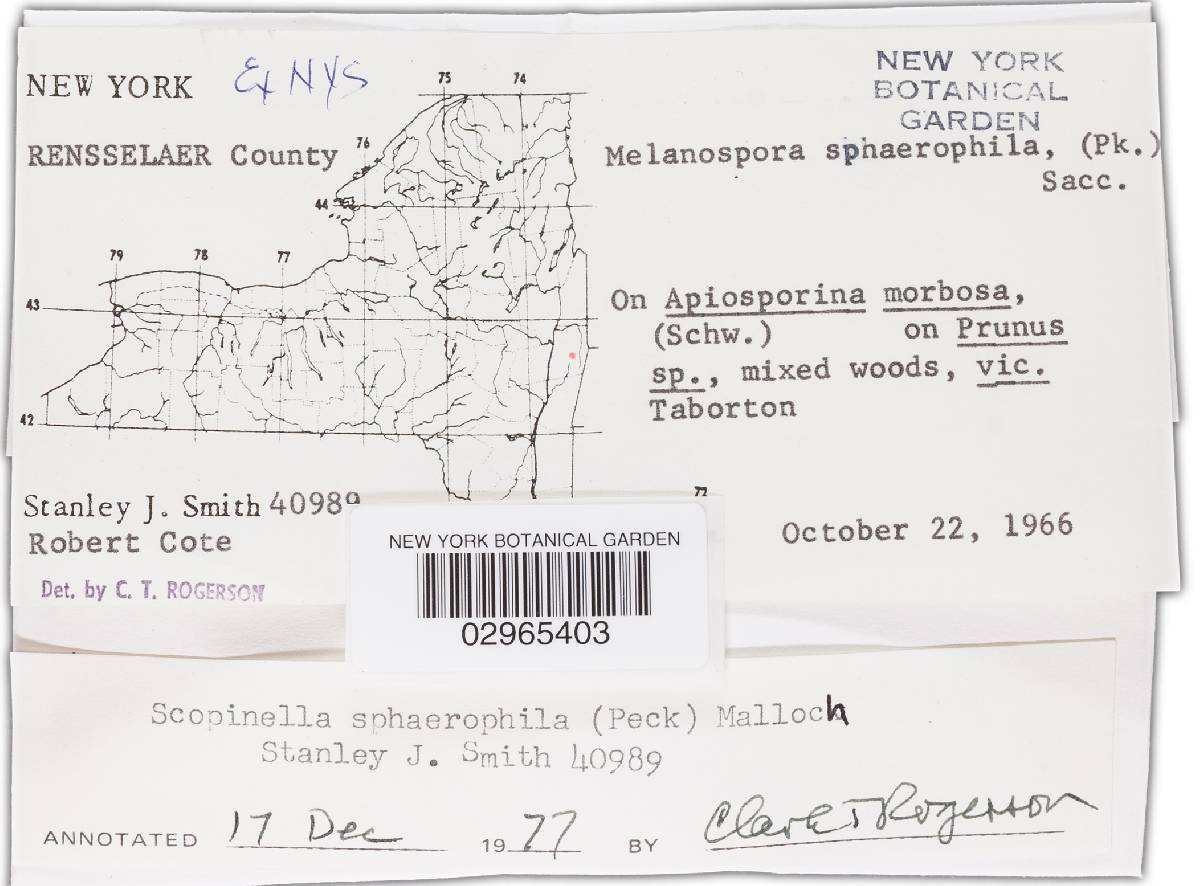 NEW YORK Ex NYS
RENSSELAER County
NEW YORK
BOTANICAL
GARDEN
Melanospora sphaerophila, (Pk.)
Sacc.
75 74
76
44
79 78 77
43
42
72
On Apiosporina morbosa,
(Schw.) on Prunus
sp., mixed woods, vic.
Taborton
Stanley J. Smith 40989
Robert Cote
October 22, 1966
Det. by C. T. ROGERSON
NEW YORK BOTANICAL GARDEN
02965403
Scopinella sphaerophila (Peck) Malloch
Stanley J. Smith 40989
ANNOTATED 17 Dec 1977 BY Clark T Rogerson